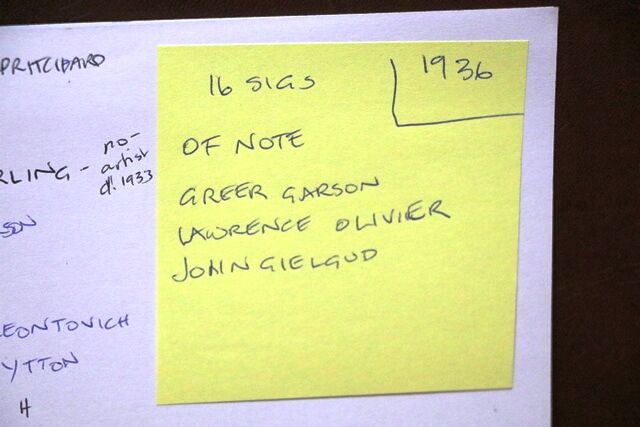 PRITCHARD
RLING - no-
artist
d. 1933
SON
LEONTOVICH
YTTON
H
16 SIGS
1936
OF NOTE
GREER GARSON
LAWRENCE OLIVIER
JOHN GIELGUD